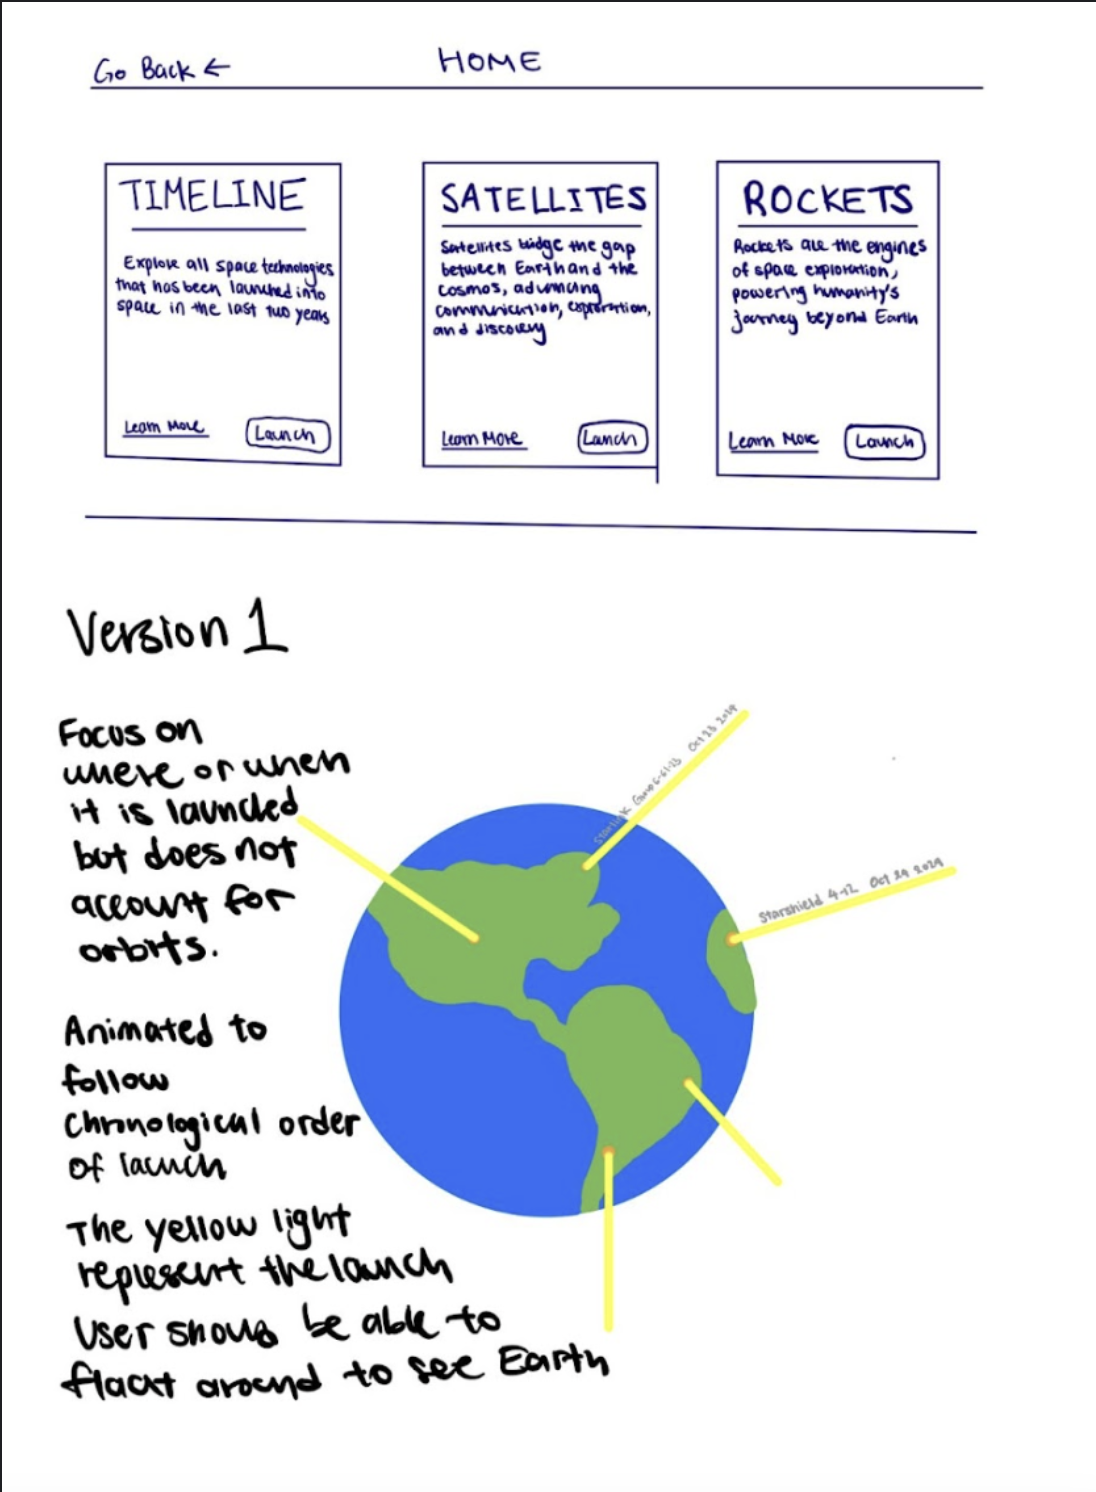 Go Back ←
HOME
TIMELINE
Explore all space technologies
that has been launched into
space in the last two years
Learn More
Launch
SATELLITES
Satellites bridge the gap
between Earth and the
cosmos, advancing
communication, exploration,
and discovery
Learn More
Launch
ROCKETS
Rockets are the engines
of space exploration,
powering humanity's
journey beyond Earth
Learn More
Launch
Version 1
Focus on
where or when
it is launched
but does not
account for
orbits.
Animated to
follow
Chronological order
of launch
The yellow light
represent the launch
User should be able to
float around to see Earth
Starlink Oct 23 2024
Starshield 4-12 Oct 24 2024